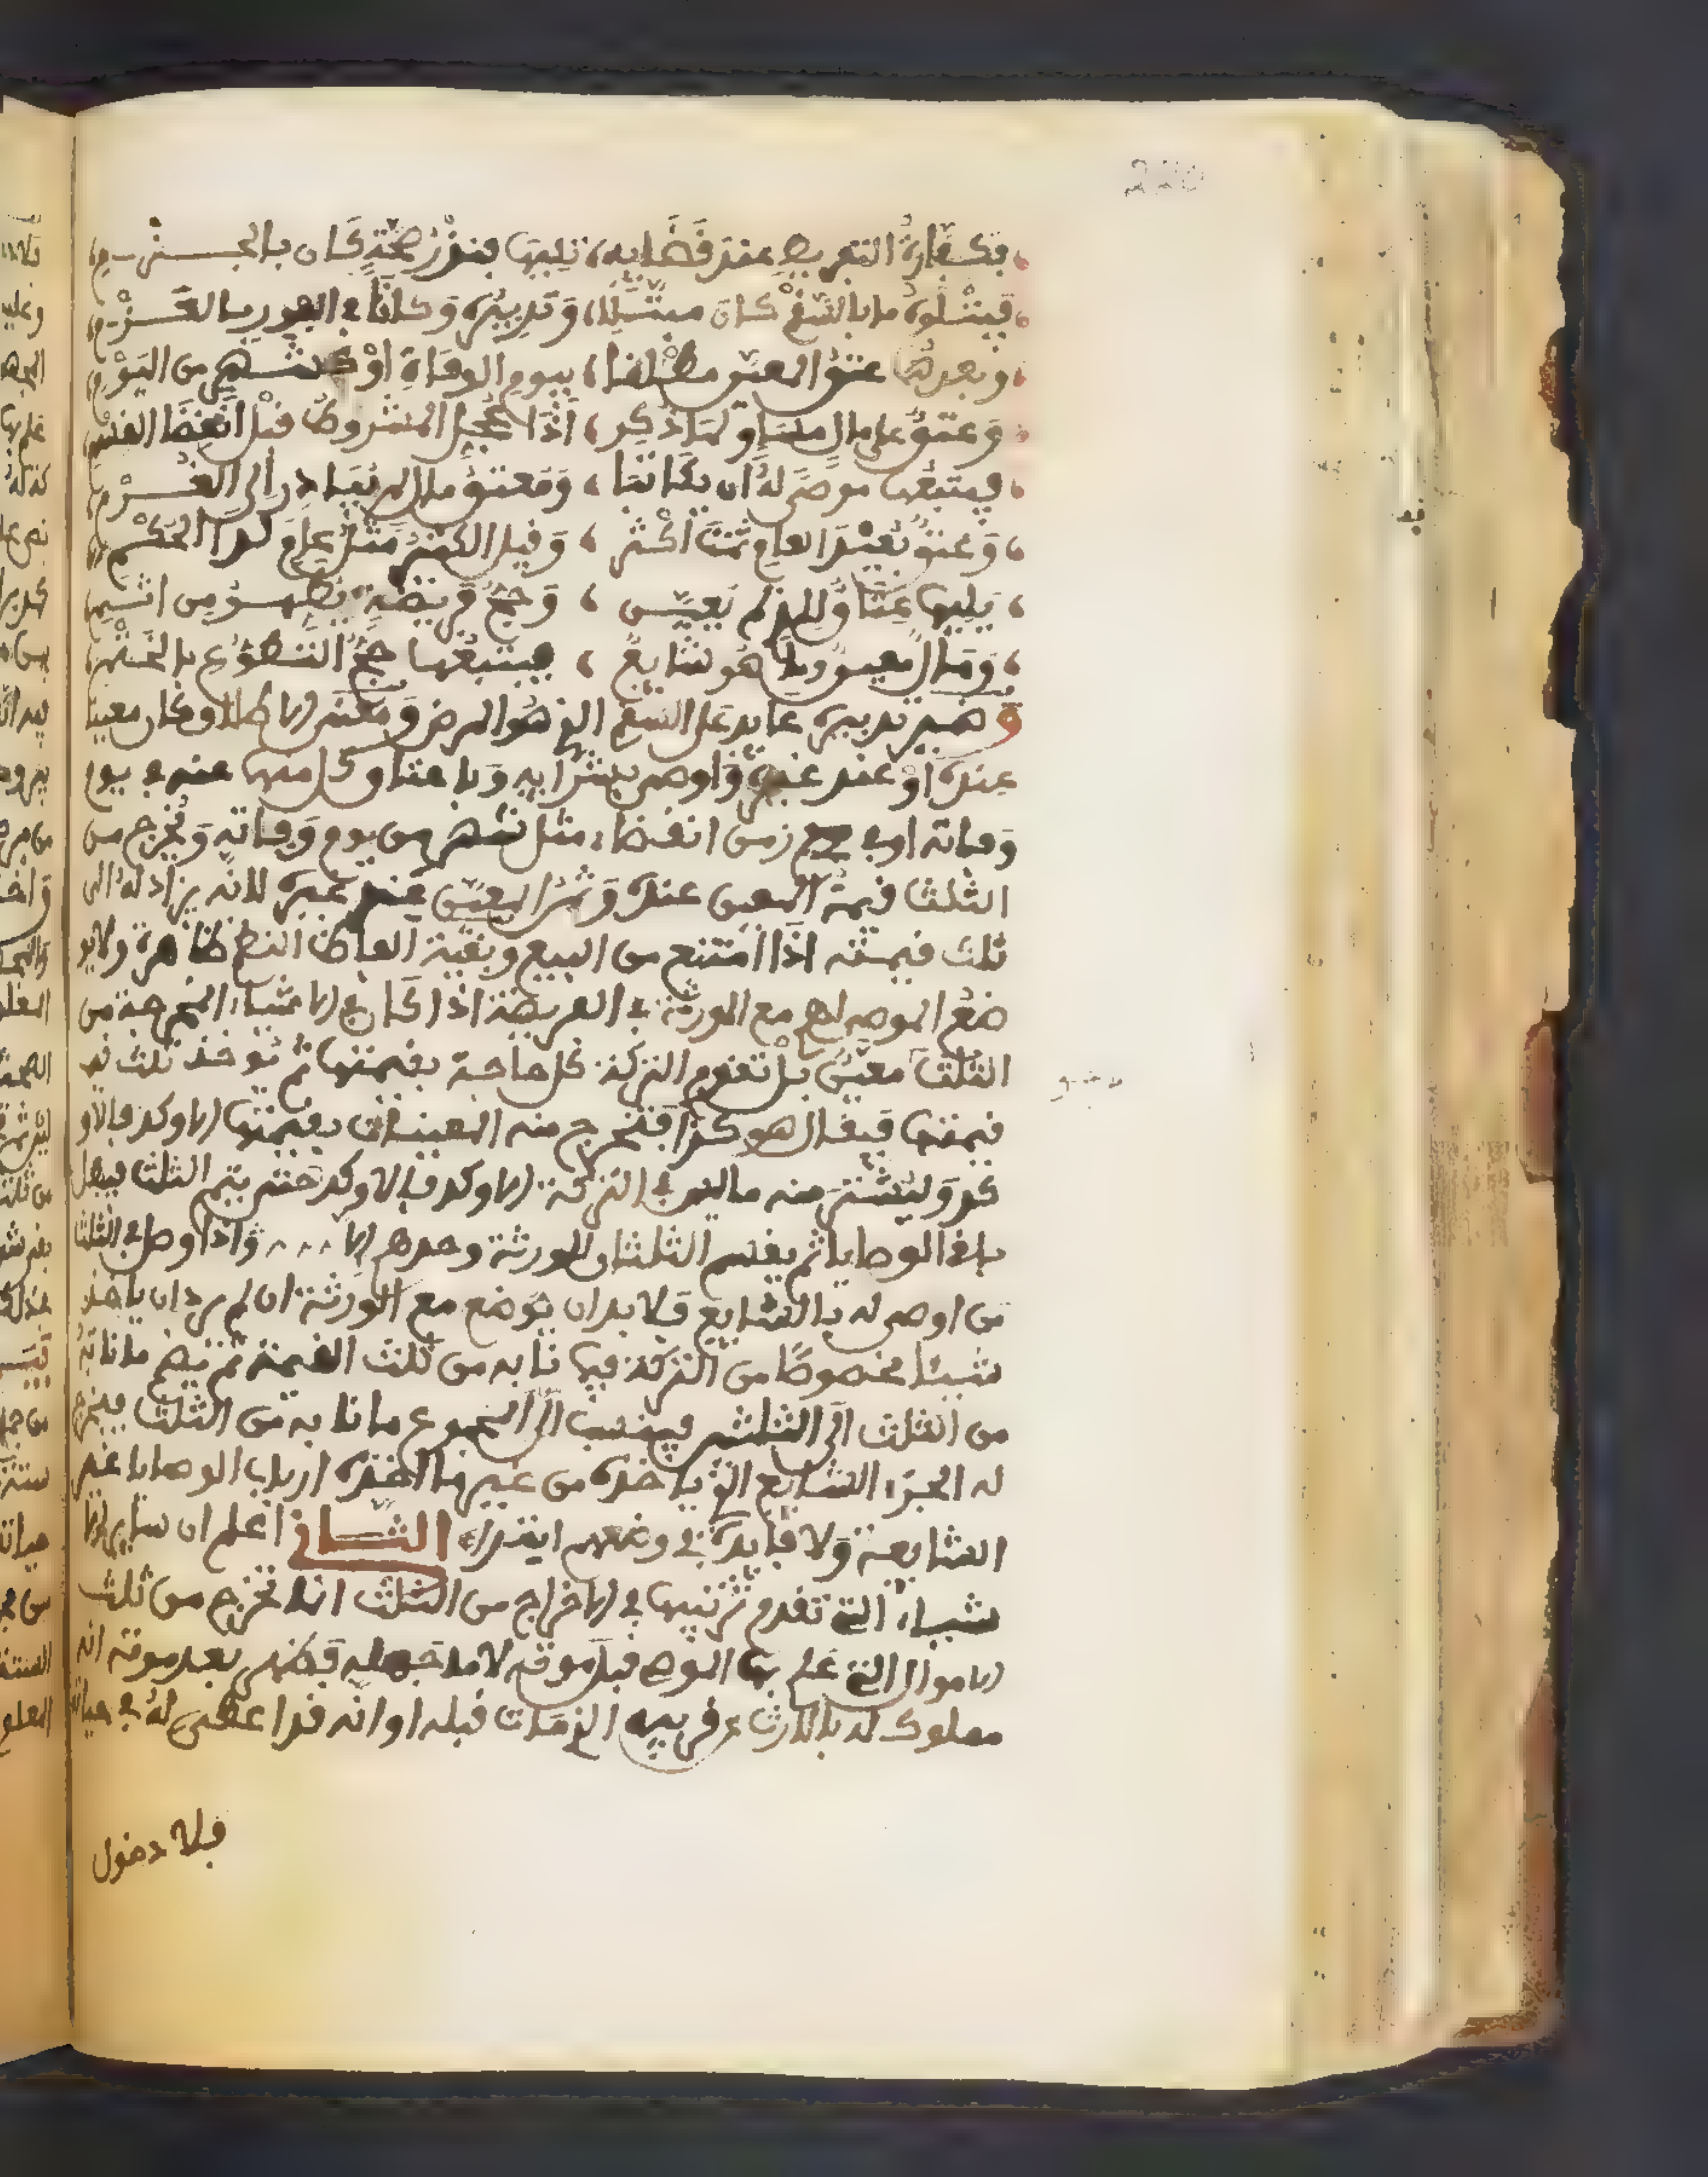 فكفارة التفريط عند قضايه، تليها فنذر صحة كان بالجزم
فيتلوه ما بالسقم كان مبتلا، وتدبيره وكانا في الفور بالعزم
وبعدها عتق المعين مطلقا، بيوم الوفاة او كشهر من اليوم
وعتق على مال مساو لما ذكر، اذا عجل المشروط قبل انقضا
فيتبعها موصى له ان يكاتبا، ومعتق مال لم يبادر الى الغرم
وعتق بعيد العام ثمت اكثر، وقيل الكثير مثل عام لدا الحكم
يليها عتاق للذي لم يعين، وحج فريضة يطهر من اثم
ومال معين وما هو شايع، فيتبعها حج التطوع بالختم
وضمير تدبيره عايد على السقم الذي هو المرض ومعنى الاطلاق كان معينا
عنده او عند غيره واوصى بشرايه وباعتاق كل منهما عنه في يوم
وفاته او في زمن انقضاء مثل شهر من يوم وفاته وتخرج من
الثلث قيمة المعين عنده وثمن المعين عند غيره لانه يزاد له الى
ثلث قيمته اذا امتنع من البيع وبقية الفاظ النظم ظاهرة ولا يو
ضع الموصى لهم مع الورثة في الفريضة اذا كان في الاشياء المخرجة من
الثلث معين بل تقوم التركة كل حاجة بقيمتها ثم يوخذ ثلث
قيمتها فيقال هو كذا فتخرج منه المعينات بقيمتها الاوكد فالاو
كد وليشتر منه ما ليس في التركة الاوكد فالاوكد حتى يتم الثلث فيبطل
باقي الوصايا ثم يقسم الثلثان للورثة وحدهم واذا وصل في الثلث
من اوصى له بالشايع فلا بد ان يوضع مع الورثة ان لم يرد ان ياخذ
شيئا مخصوصا من التركة فيما نابه من ثلث القيمة ثم يضم ما نابه
من الثلث الى الثلثين فينسب الى المجموع ما نابه من الثلث فيخرج
له الجزء الشايع الذي ياخذه من غير ما اخذه ارباب الوصايا غير
الشايعة ولا فايدة في وضعهم ابتداء الثاني اعلم ان ساير الا
شياء التي تقدم ترتيبها في الاخراج من الثلث انما تخرج من ثلث
الاموال التي علم بها الموصي قبل موته لا ما جهله فظهر بعد موته انه
مملوك له بالارث قريبه الذي مات قبله او انه قد اعطى له في حياته
فلا دخول